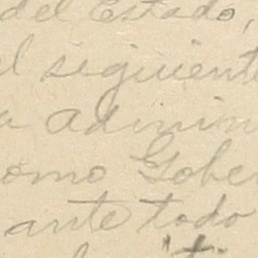 del Estado,
el siguient
a admin
omo Gober
ante todo